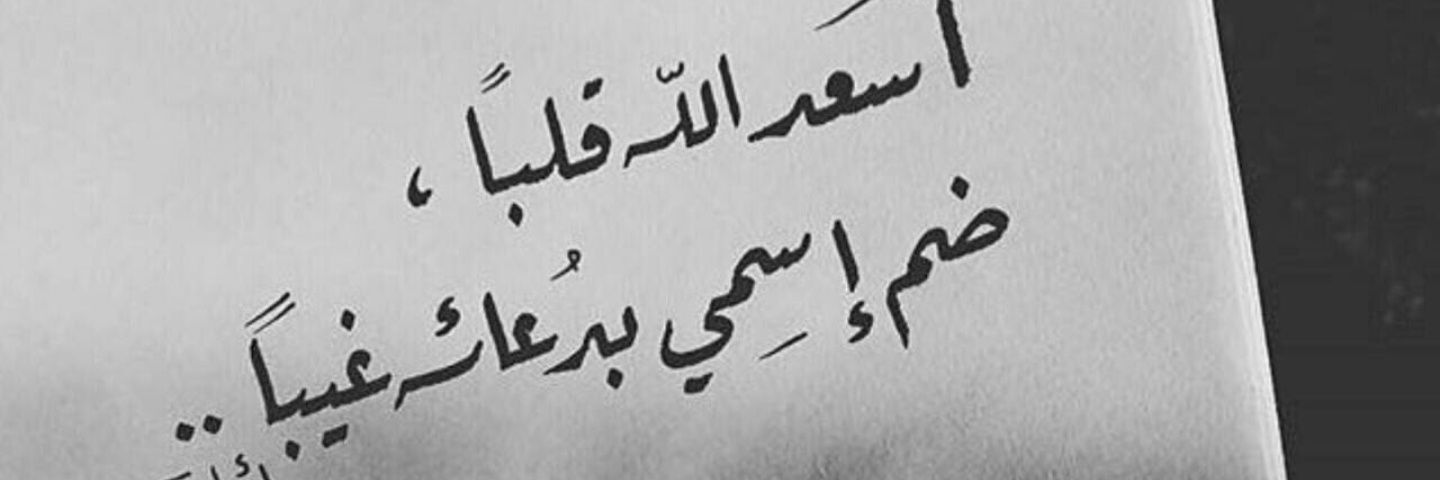 أسعَد اللّه قلباً ،
ضم إسِمي بدُعائه غيباً ..